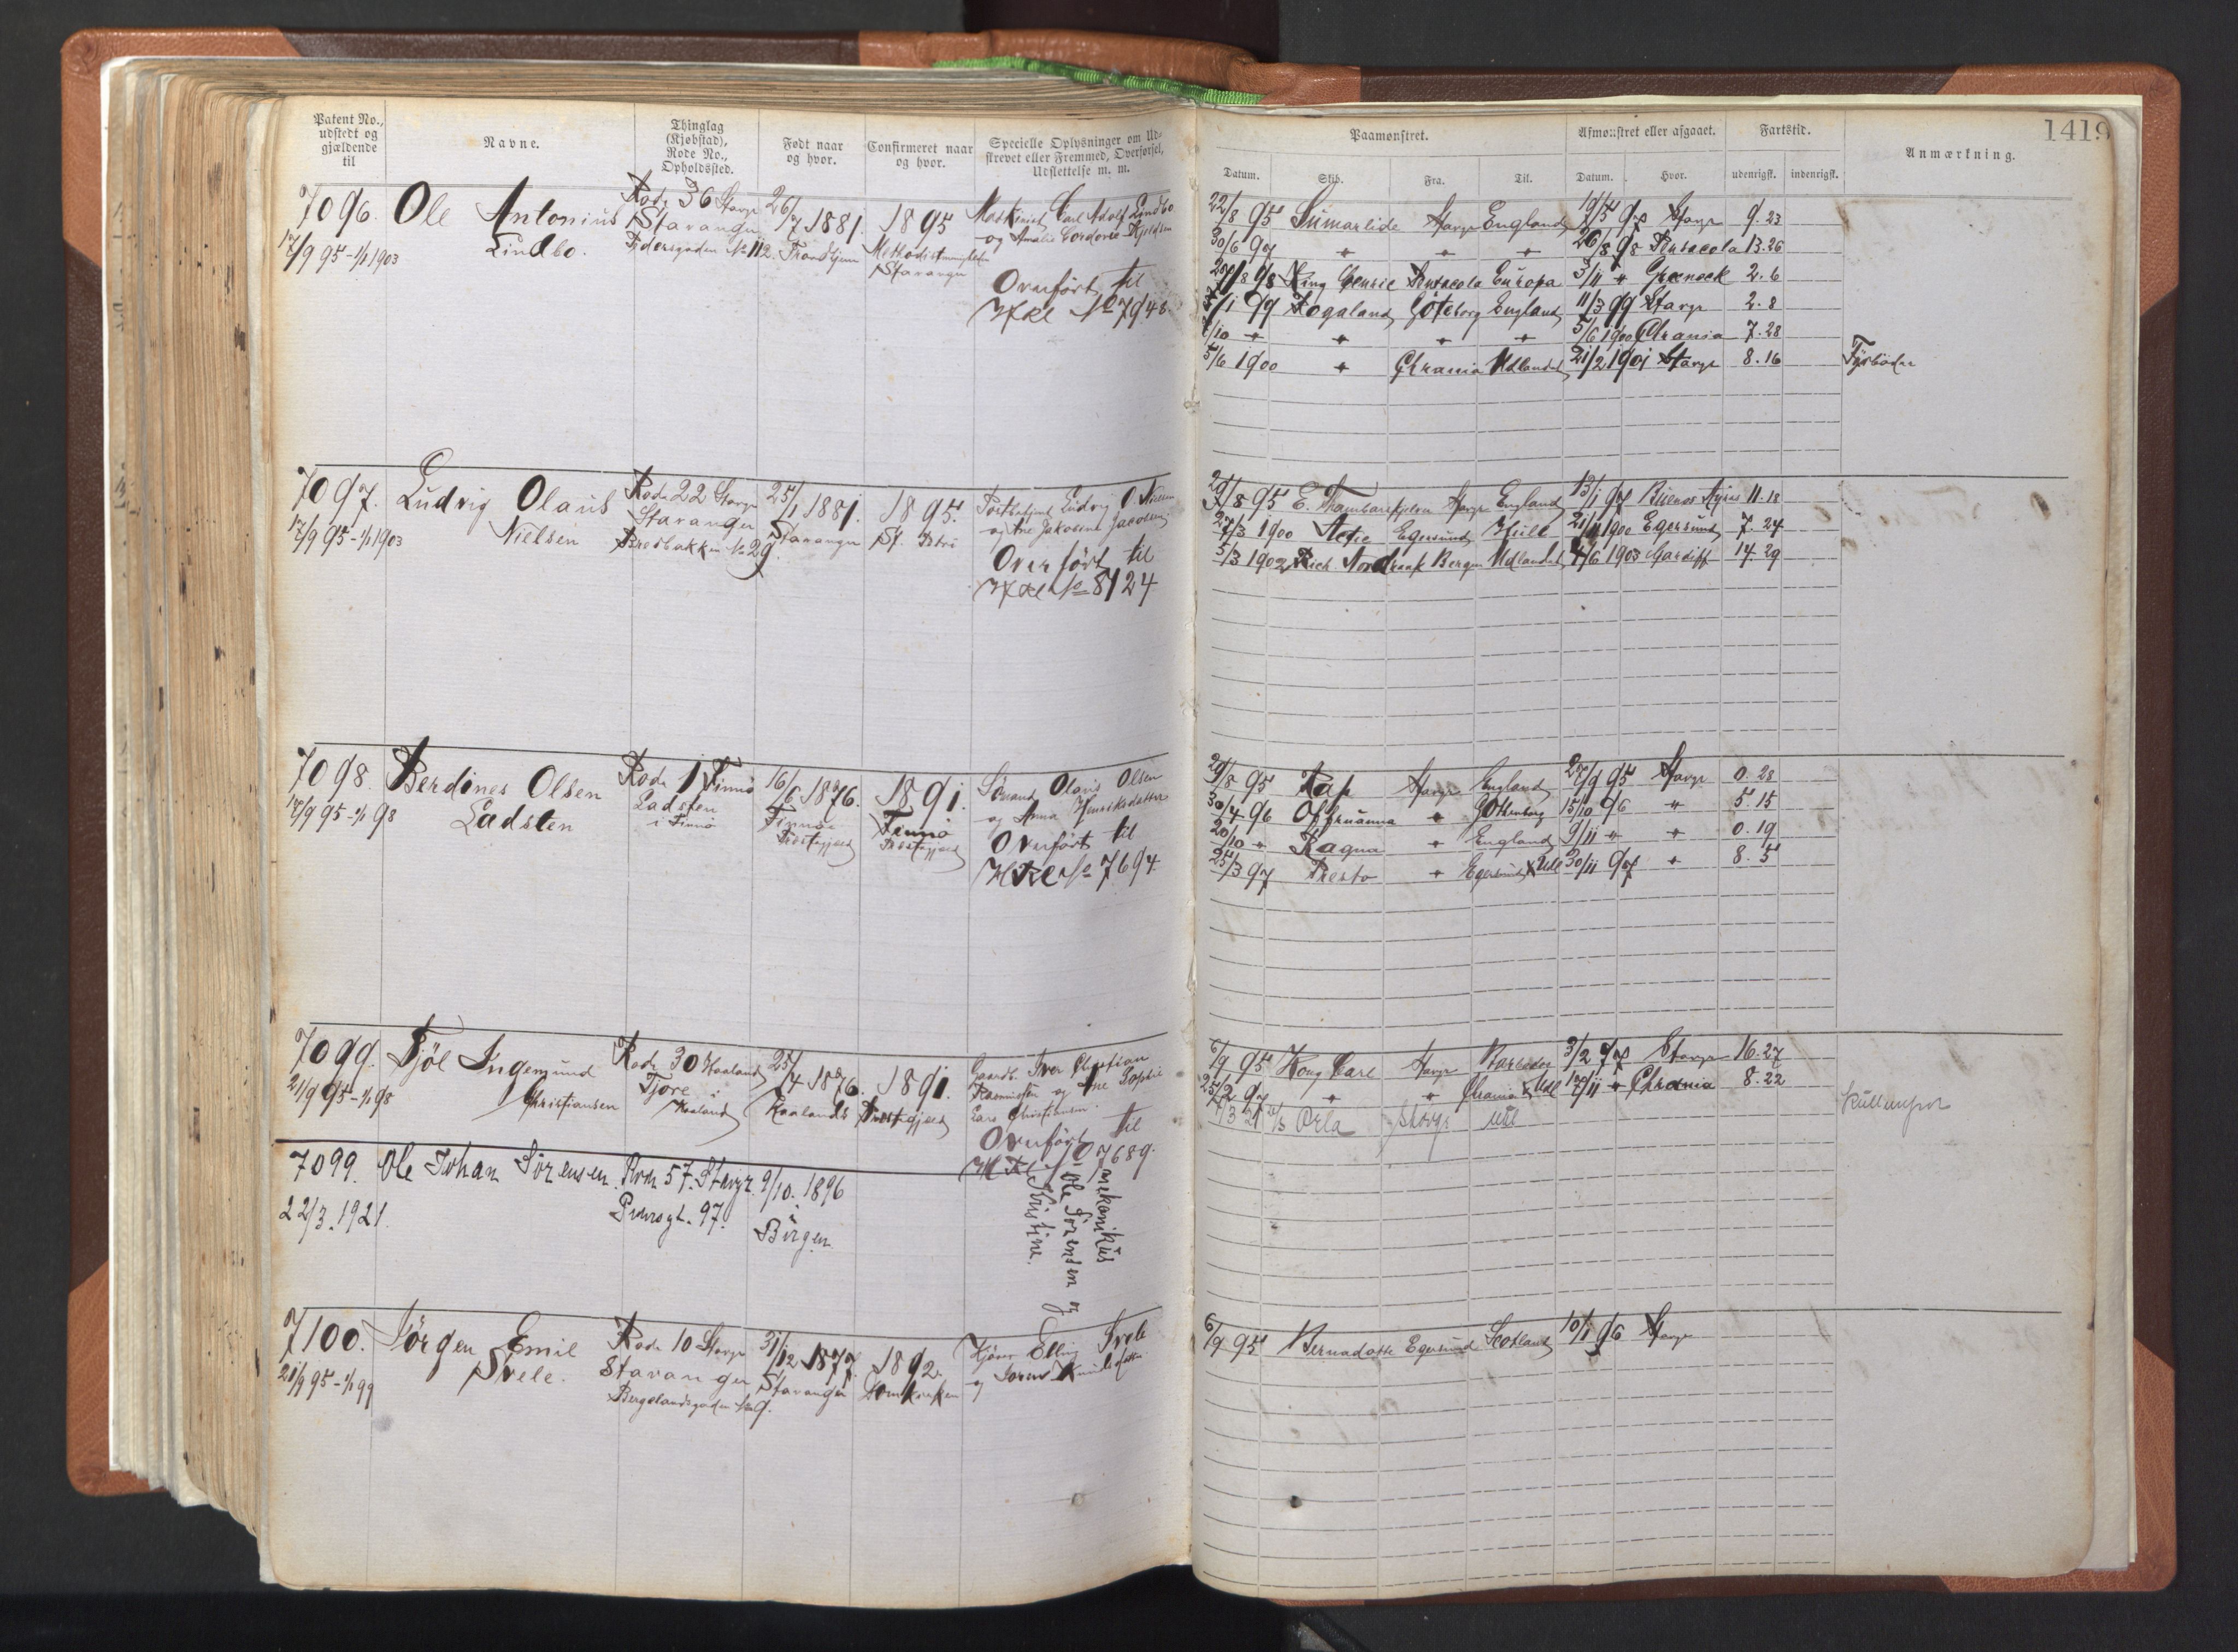 Patent No.,
udstedt og
gjældende
til
Navne.
Thinglag
(Kjøbstad),
Rode No.,
Opholdssted.
Født naar
og hvor.
Confirmeret naar
og hvor.
Specielle Oplysninger om Ud-
skrevet eller Fremmed, Overførsel,
Udslettelse m. m.
7096. Ole Antonius
Lindbo.
17/9 95 - 1/1 1903
Rode 36 Stavgr
Stavanger
Pedersgaden No 112.
26/7 1881.
Trondhjem
1895
Methodistmenigheden
Stavanger
Maskinist Carl Adolf Lindbo
og Amalie Cordovie
Overført til
Hkl No 7948.
7097. Ludvig Olaus
Nielsen
17/9 95 - 1/1 1903
Rode 22 Stavgr
Stavanger
Bredbakken No 29.
25/1 1881.
Stavanger
1895.
St. Petri
Ludvig O Nielsen
og Ane Jakobine Jacobsen
Overført til
Hkl No 8124
7098. Berdines Olsen
Ladsten
17/9 95 - 1/1 98
Rode 1 Finnö
Ladsten
i Finnö
16/6 1876.
Finnö
Præstegjæld
1891.
Finnö
Præstegjæld
Sömand Olavis Olsen
og Anna Henriksdatter
Overført til
Hkl No 7694.
7099. Kjöl Ingemund
Christiansen
21/9 95 - 1/1 98
Rode 30 Haaland
Tjore i
Haaland
25/4 1876.
Haalands
1891.
Præstegjæld
Gaardb. Iver Christian
Rasmussen og Ane Sophie
Lars Christiansen.
Overført til
Hkl No 7689.
7099. Ole Johan Sörensen.
22/3. 1921.
Rode 57. Stavgr.
Pedersgt. 97.
9/10. 1896
i
Bergen.
mekanikus
Ole Sörensen og
Kristine.
7100. Jörgen Emil
Svele.
21/9 95 - 1/1 99
Rode 10 Stavgr
Stavanger
Bergelandsgaden No 9.
31/12 1877.
Stavanger
1892.
Domkirken
Elling Svele
og Knudsdatter
Paamønstret.
Afmønstret eller afgaaet.
Fartstid.
Anmærkning.
1419
Datum. Skib. Fra. Til. Datum. Hvor. udenrigsk. indenrigsk.
22/8 95 Sumarlide Stavgr England 19/5 97 Stavgr 9. 23
30/6 97 " " " 26/8 98 Pensacola 13. 26
27/8 98 King Cenric Pensacola Europa 3/11 " Greneck 2. 6
3/1 99 Rogaland Göteborg England 11/3 99 Stavgr 2. 8
7/10 " " " " 5/6 1900 Chrania 7. 28
5/6 1900 " Chrania Udlandet 21/2 1901 Stavgr 8. 16 Fyrböder
29/8 95 E. Tambarskjelver Stavgr England 13/1 97 Buenos Ayres 11. 18
27/3 1900 Actie Egersund Hull 21/11 1900 Egersund 7. 24
5/3 1902 Rich. Nordraak Bergen Udlandet 4/6 1903 Cardiff 14. 29
29/8 95 Rap Stavgr England 27/9 95 Stavgr 0. 28
30/4 96 " Gothenborg 15/10 96 " 5. 15
20/10 " Ragna " England 9/11 " " 0. 19
25/3 97 Presto " Egersund & Udl 30/11 97 " 8. 5
6/9 95 Kong Carl Stavgr 3/2 97 Stavgr 16. 27
25/2 97 " " Chrania & Udl 17/11 " Chrania 8. 22
Orla Stavgr Udl
Kullemper
6/9 95 Bernadotte Egersund Scotland 10/1 96 Stavgr